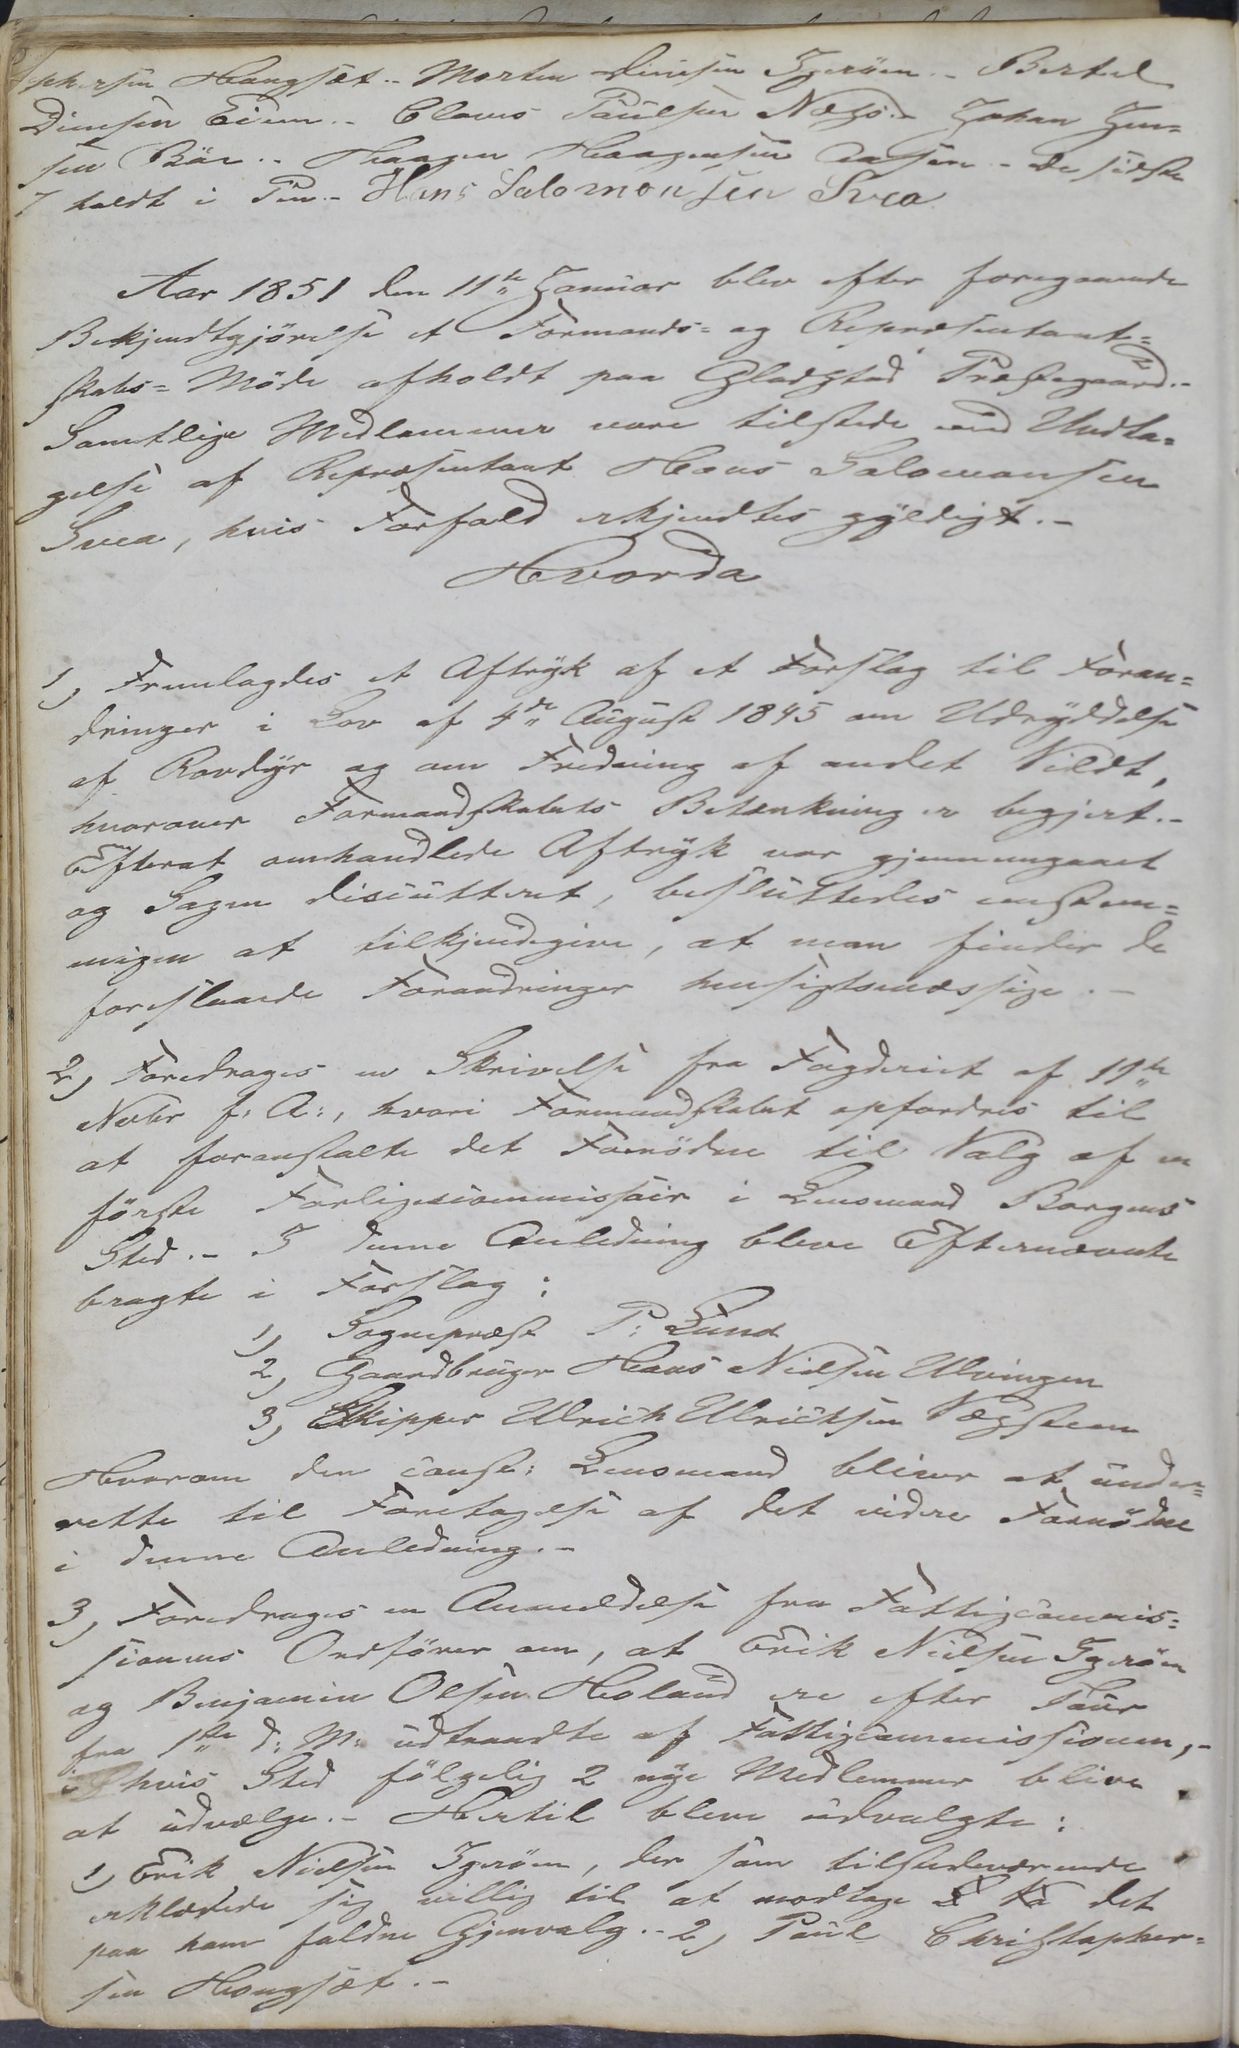 phersen Haugsæt.- Morten Dinesen Igerøen.- Bertel
Dinesen Eidem.- Claus Paulsen Næss.- Johan Jen=
sen Bøe.- Haagen Haagensen Aasen.- de sidste
7 holdt i Pen.- Hans Salomonsen Svea
Aar 1851 den 11te Januar blev efter foregaaende
Bekjendtgjörelse et Formands= og Repræsentant=
skabs= Möde afholdt paa Gladstad Præstegaard.-
Samtlige Medlemmer vare tilstede med Undta=
gelse af Repræsentant Hans Salomonsen
Svea, hvis Forfald erkjendtes gyldigt.-
Hvorda
1, Fremlagdes et Aftryk af et Forslag til Foran=
dringer i Lov af 4de August 1845 om Udryddelse
af Rovdyr og om Fredning af andet Vildt,
hvorover Formandskabets Betænkning er begjert.-
Efterat omhandlede Aftryk var gjennemgaaet
og Sagen discutteret, besluttedes eenstem=
migen at tilkjendegive, at man finder de
foreslaaede Forandringer hensigtsmæssige.-
2, Foredrages en Skrivelse fra Fogderiet af 19de
Novbr f: A:, hvori Formandskabet opfordres til
at foranstalte det Fornödne til Valg af en
förste Forligscommissair i Lensmand Borgens
Sted.- I denne Anledning bleve Efternævnte
bragte i Forslag:
1, Sognepræst P: Lund
2, Gaardbruger Hans Nielsen Ulvingen
3, Skipper Ulrich Ulrichsen Vægsteen
Hvorom den const: Lensmand bliver at under=
rette til Foretagelse af det videre Fornödne
i denne Anledning.-
3, Foredrages en Anmeldelse fra Fattigcommis=
sionens Ordförer om, at Erik Nielsen Igerøen
og Benjamin Olsen Holand ere efter Tour
fra 1ste d: M: udtraadte af Fattigcommissionen,-
i hvis Sted fölgelig 2 nye Medlemmer blive
at udvælge.- Hertil bleve udvalgte:
1, Erik Nielsen Igerøen, der som tilstedeværende
erklærede sig villig til at modtage det
paa ham faldne Gjenvalg.- 2, Paul Christopher=
sen Haugsæt.-